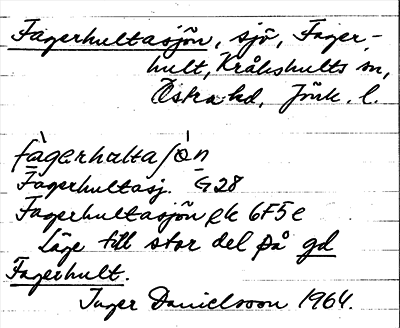 Fagerhultasjön, sjö, Fager-
hult, Kråkshults sn,
Östra hd, Jönk. l.
fàgerhulta/ʃø̀n
Fagerhultasj. G28
Fagerhultasjön ek 6F5e
Läge till stor del på gd
Fagerhult.
Inger Danielsson 1964.